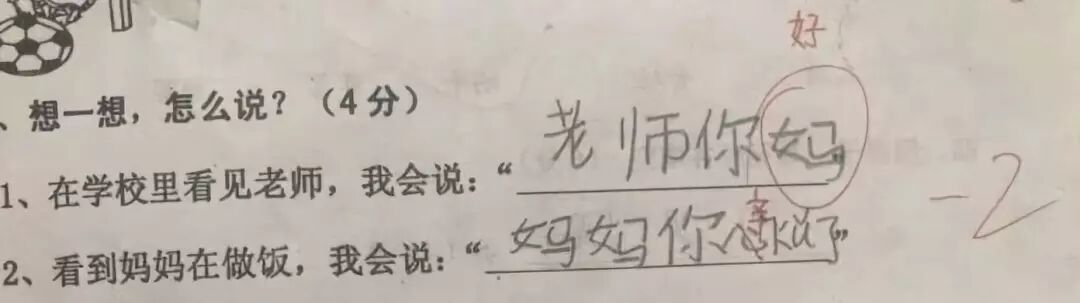 好
、想一想，怎么说？（4分）
1、在学校里看见老师，我会说：“老师你妈
-2
2、看到妈妈在做饭，我会说：“妈妈你辛苦了”